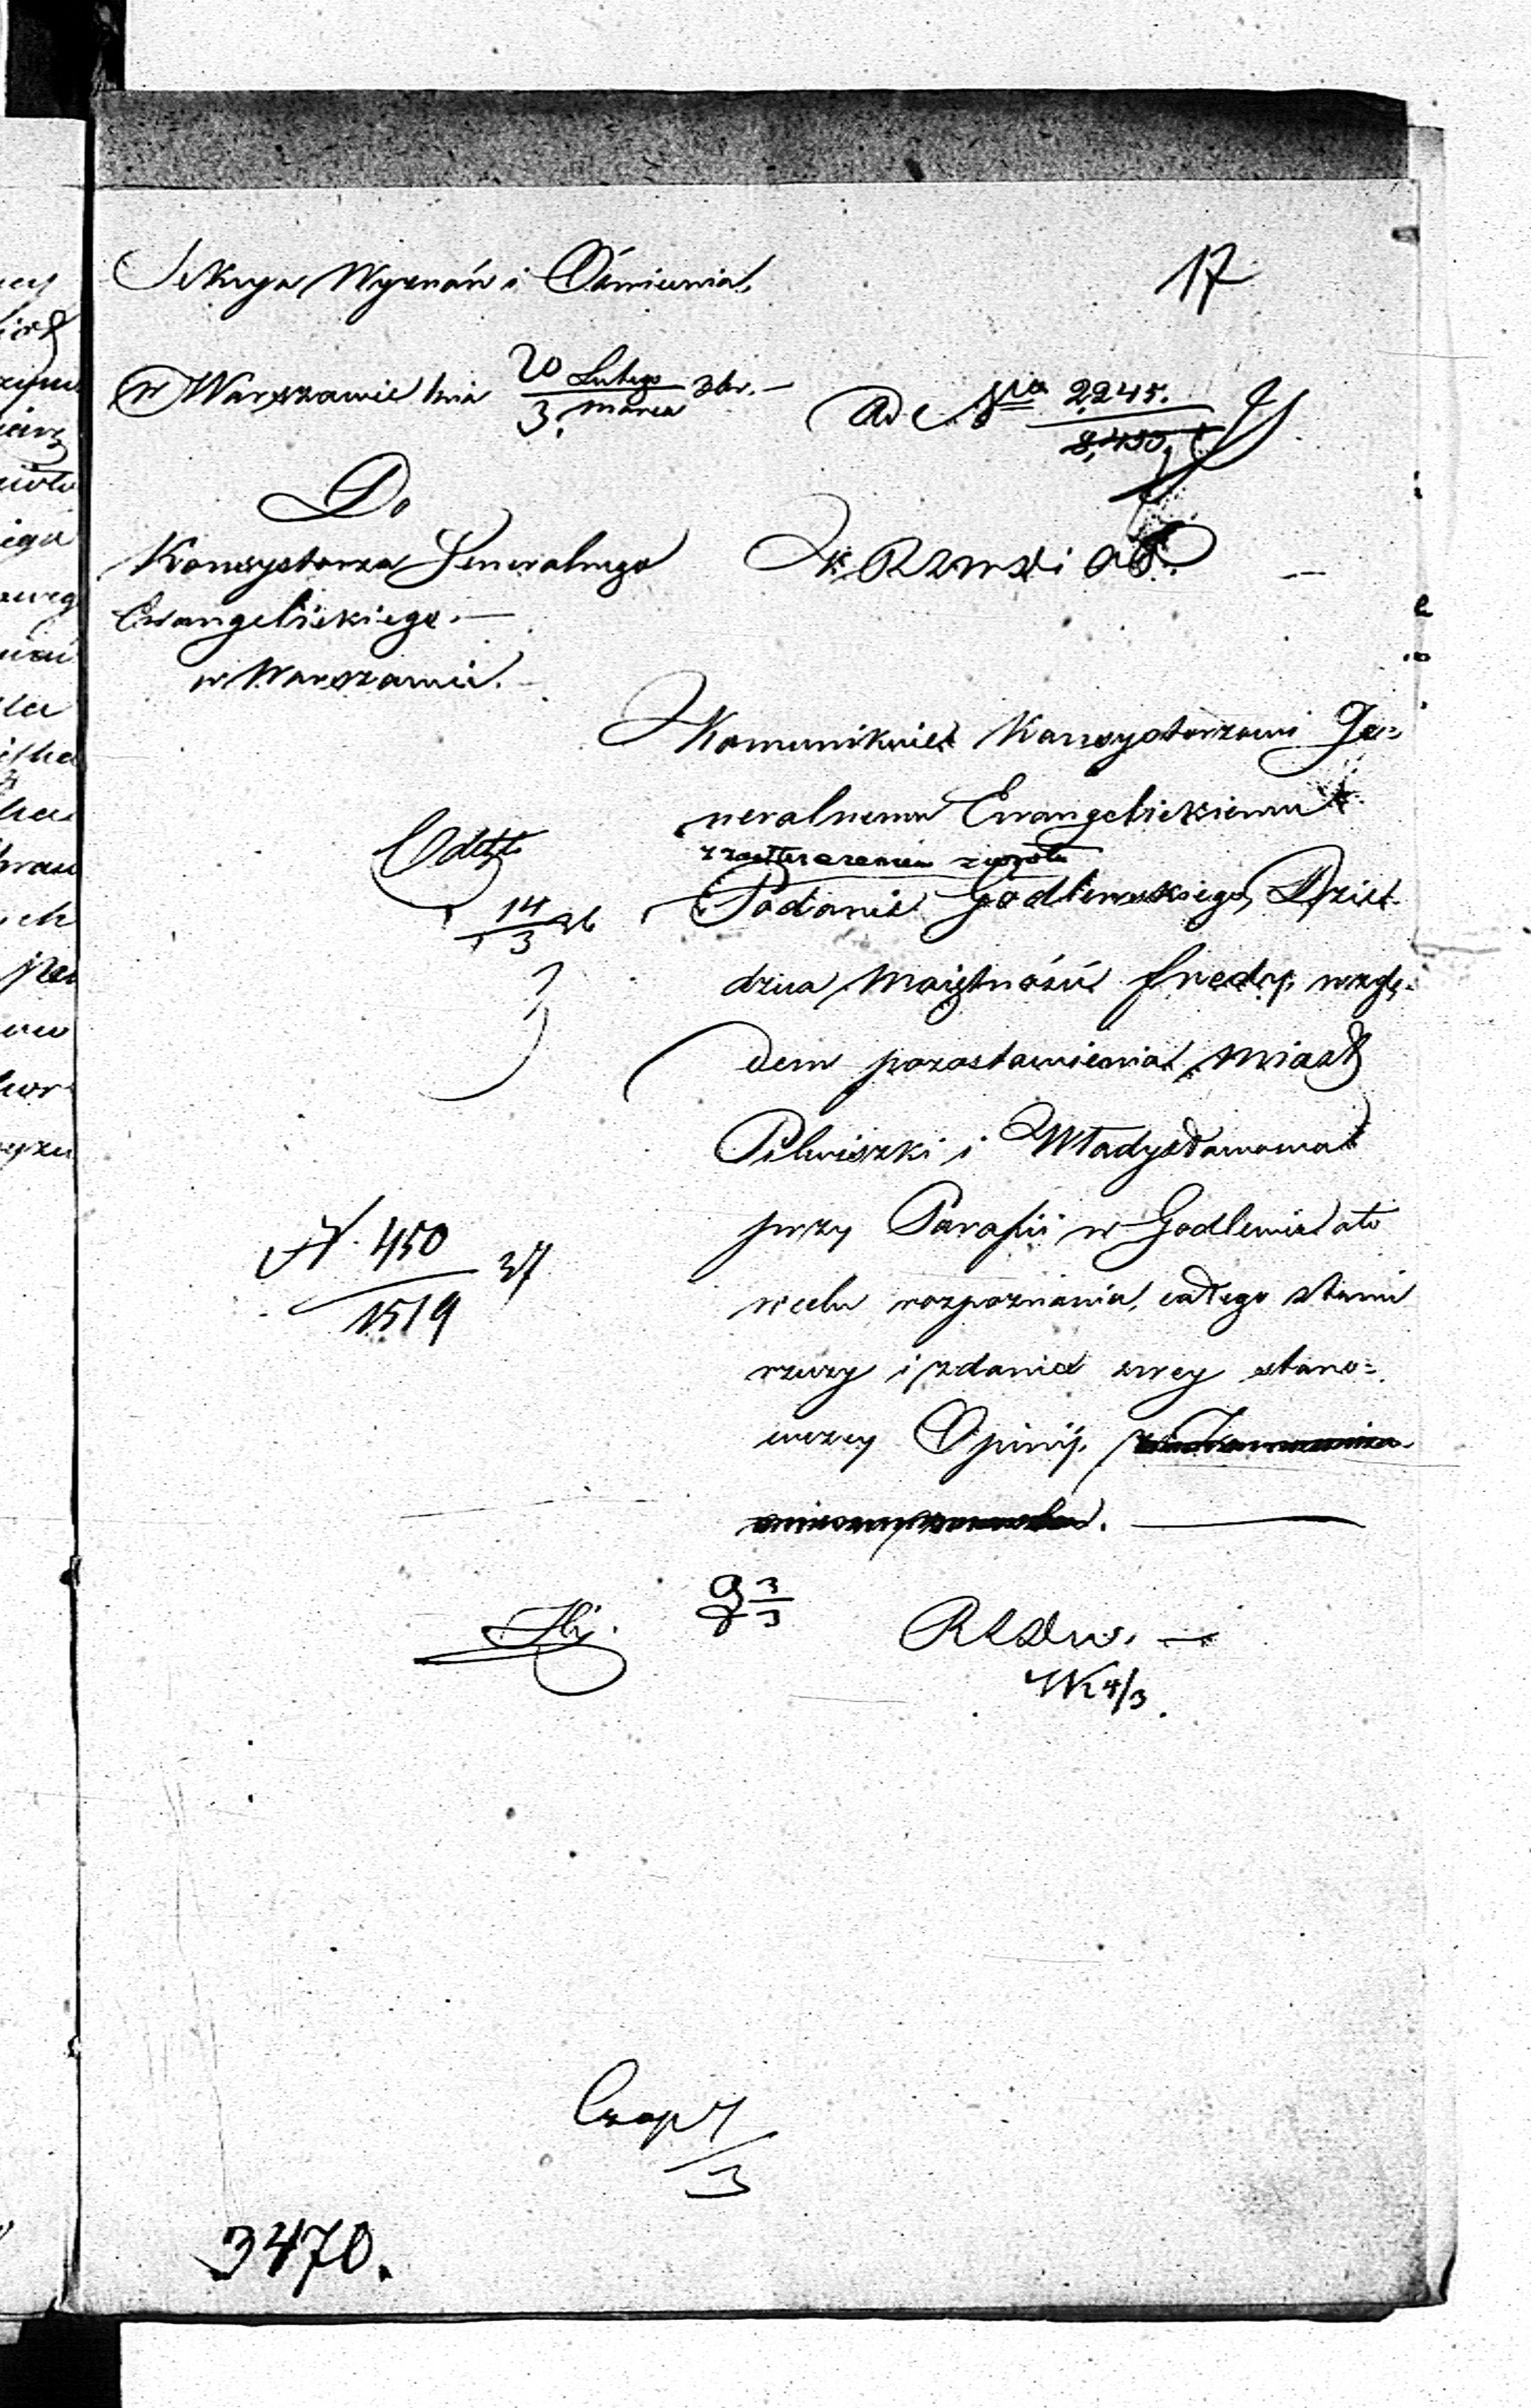 Sekcya Wyznań i Oświecenia
17
w Warszawie dnia 20 Lutego / 3 Marca
Ad Nra 2245. / 8,450.
Do
Konsystorza Generalnego
Ewangelickiego. —
w Warszawie.
Komunikuie Konsystorzowi Ge=
neralnemu Ewangelickiemu
z zastrzeżeniem zwrotu
Podanie Godlewskiego Dzie-
dzica Maiętności Fredy, wzglę-
dem pozostawienia miast
Pilwiszki i Władysławowa
przy Parafii w Godlewie a to
w celu rozpoznania, całego stanu
rzeczy i zdania swey stano=
wczey Opinij.
14/3
N. 450 / 1519 37
3/3
4/3
Czap 7/3
3470.